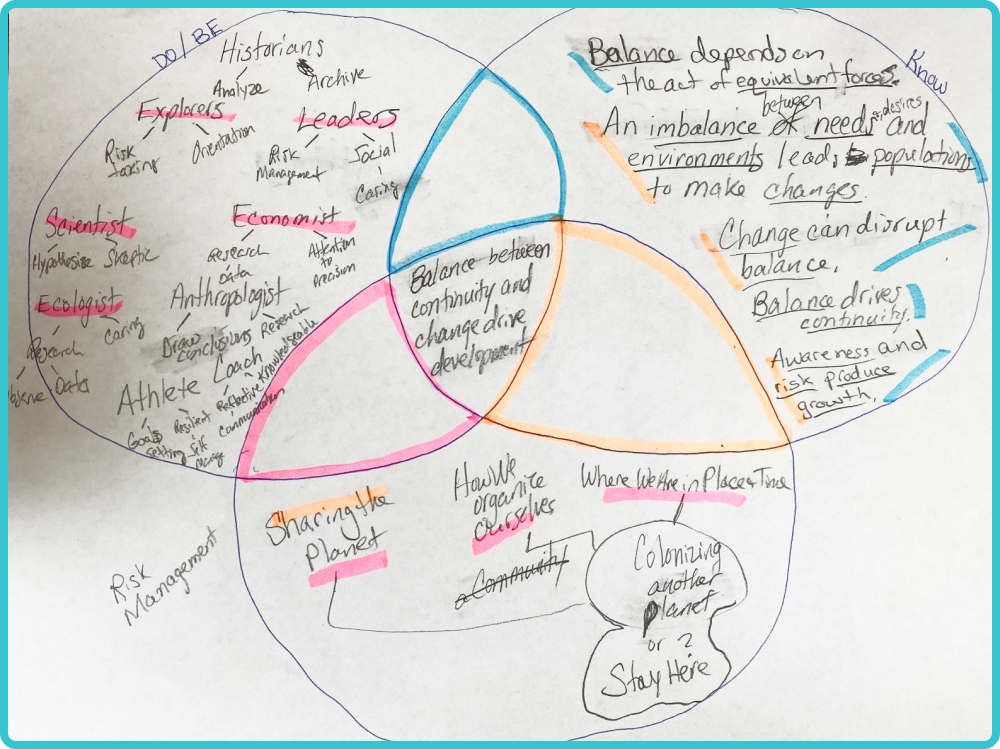 DO/BE
Historians
Analyze
Archive
Explorers
Risk
taking
Orientation
Leaders
Risk
Management
Social
Caring
Scientist
Hypothesize
Skeptic
Economist
Research
Data
Attention
to
Precision
Ecologist
Research
Data
caring
Anthropologist
Draw
Conclusions
Research
Knowledgeable
Athlete
Goal
Setting
Resilient
Self
Manage
Coach
Reflective
Communication
Know
Balance depends on
the act of equivalent forces.
between
An imbalance of needs + desires and
environments leads populations
to make changes.
Change can disrupt
balance.
Balance drives
continuity.
Awareness and
risk produce
growth.
Balance between
continuity and
change drive
development
Sharing the
Planet
How We
organize
Ourselves
a Community
Where We Are in Place + Time
Colonizing
another
planet
or ?
Stay Here
Risk
Management